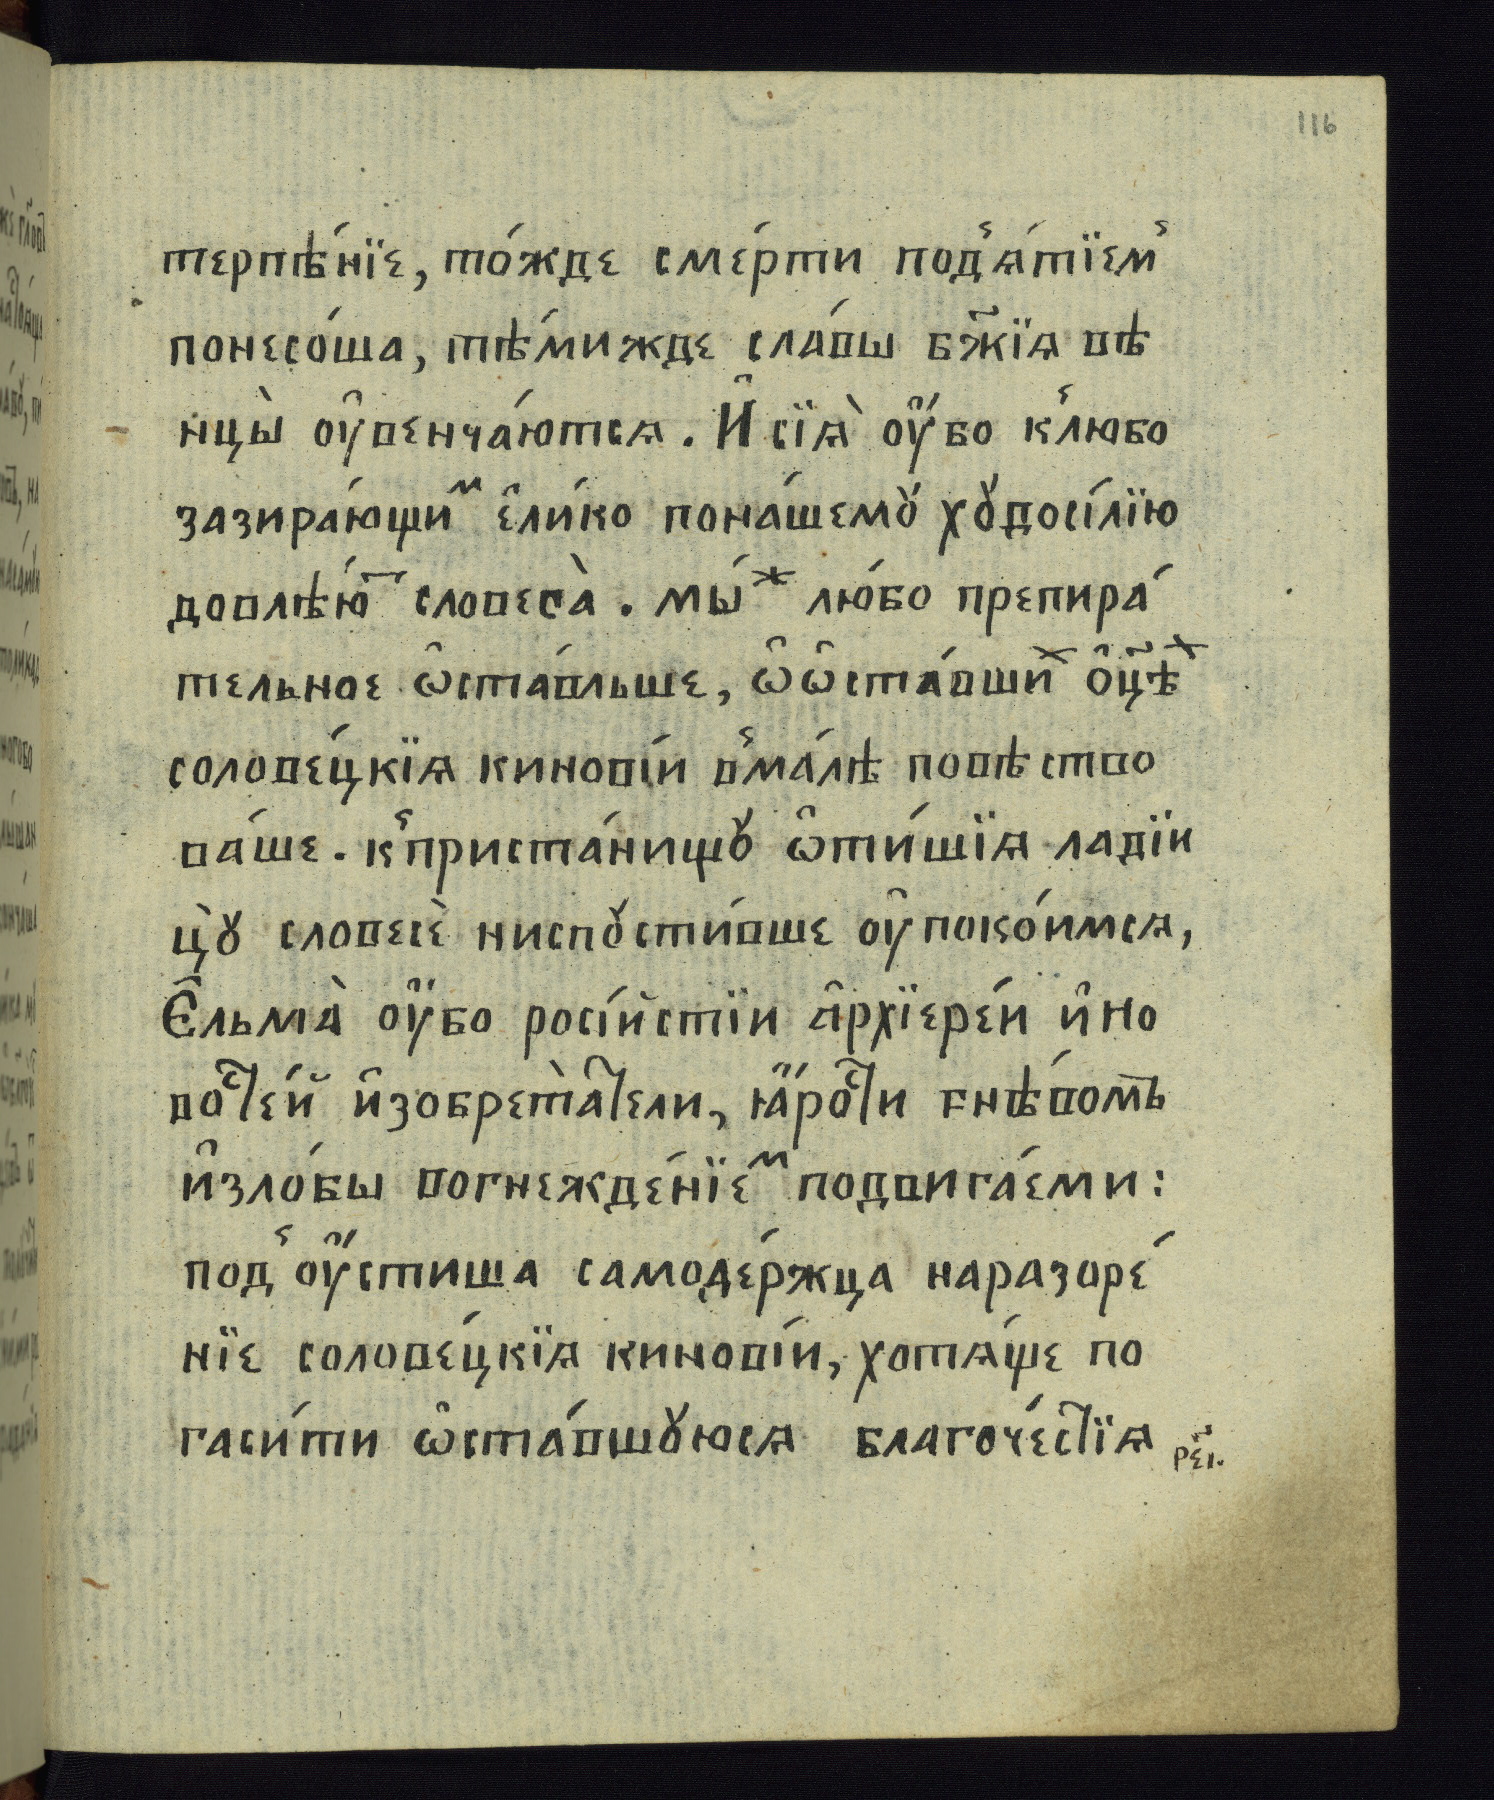 116
терпѣ́нїе, то́жде сме́рти под̾ѧ́тїем̾
понесо́ша, тѣ́мижде сла́вы бж҃їѧ вѣ
нцы̀ оу҆венча́ютсѧ. И҆ сїѧ̀ оу҆́бо к̾любо
зазира́ющиⷨ є҆ли́ко пона́шемꙋ хꙋдоси́лїю
довлѣ́юⷮ словеса̀. мы́ⷤ лю́бо препира́
тельное ѡ҆ста́вльше, ѡ҆ѡ҆ста́вшиⷯ ѻ҆ц҃ѣⷯ
солове́цкїѧ кинові́и в̾ма́лѣ повѣство
ва́ше. к̾приста́нищꙋ ѡ҆ти́шїѧ ладїи
цꙋ̀ словесѐ ниспꙋсти́вше оу҆поко́имсѧ,
Є҆льма̀ оу҆́бо росі́йстїи а҆рхїере́и и҆но
воⷭ҇те́й и҆зобрета̀тели, ꙗ҆́роⷭ҇ти гнѣ́вомъ
и҆зло́бы вогнежде́нїеⷨ подвига́еми:
под̾ оу҆́стиша самоде́ржца наразоре́
нїе солове́цкїѧ кинові́и, хотѧ́ще по
гаси́ти ѡ҆ста́вшꙋюсѧ благоче́стїѧ
рє҃і.